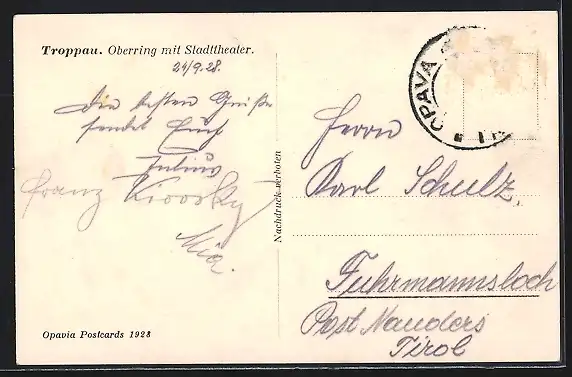 Troppau. Oberring mit Stadttheater.
24/9.28.
Die besten Grüße
sendet Euch
Julius
Franz
Mia.
Opavia Postcards 1928
Nachdruck verboten
OPAVA 1
Herrn
Karl Schulz
Fuhrmannsloch
Post Nauders
Tirol